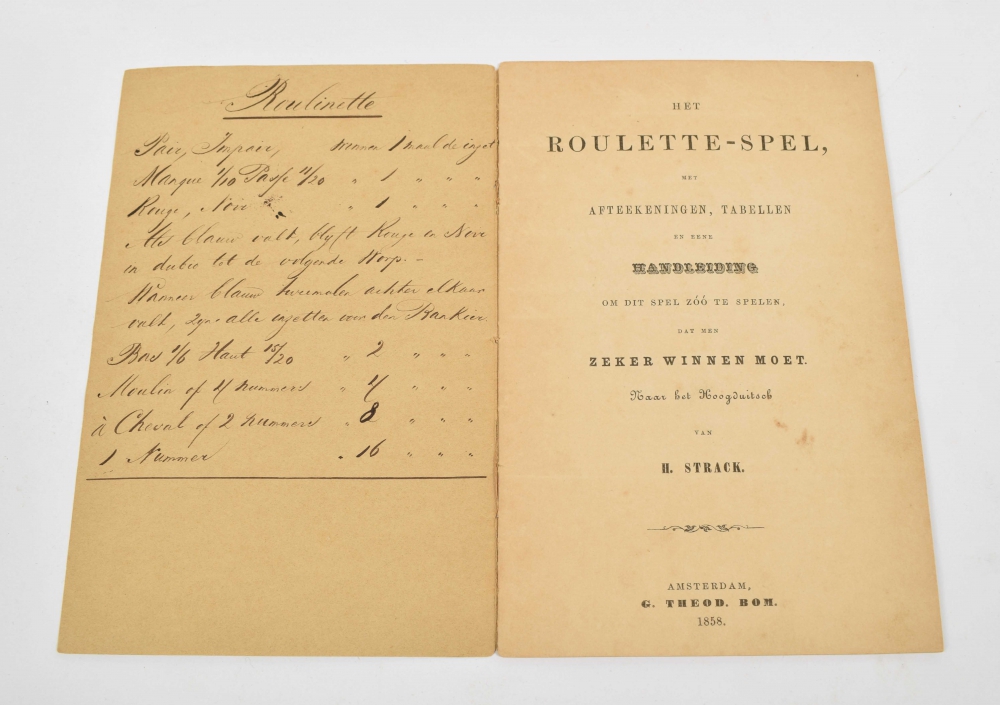 Roulinette
Pair, Impair, winnen 1 maal de inzet
Manque 1/10 Passe 11/20 " 1 " " "
Rouge, Noir " 1 " " "
Als blauw valt, blyft Rouge en Noir
in dubio tot de volgende Worp. -
Wanneer blauw tweemalen achter elkaar
valt, zyn alle inzetten voor den Bankier
Bas 1/6 Haut 15/20 " 2 " " "
Moulin of 4 nummers " 4 " " "
à Cheval of 2 nummers " 8 " " "
1 Nummer " 16 " " "
HET
ROULETTE-SPEL,
MET
AFTEEKENINGEN, TABELLEN
EN EENE
HANDLEIDING
OM DIT SPEL ZÓÓ TE SPELEN,
DAT MEN
ZEKER WINNEN MOET.
Naar het Hoogduitsch
VAN
H. STRACK.
AMSTERDAM,
G. THEOD. BOM.
1858.